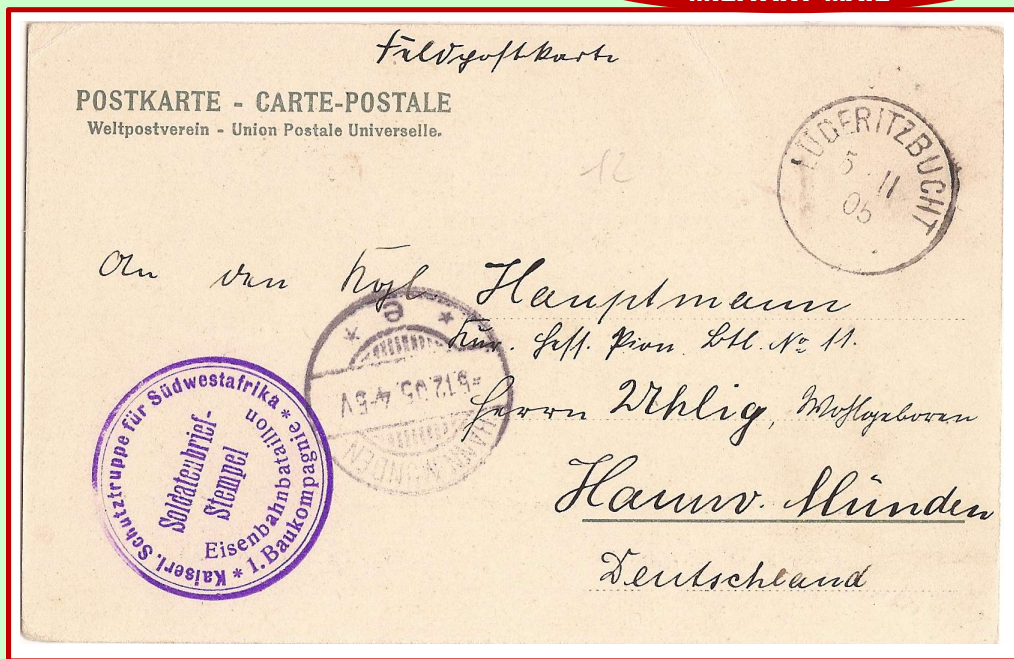 Feldpostkarte
POSTKARTE - CARTE-POSTALE
Weltpostverein - Union Postale Universelle.
12
LÜDERITZBUCHT
5 . 11
05
An den Kgl. Hauptmann
Kur. Hess. Pion. Btl. No 11.
Herrn Uhlig, Wohlgeboren
Hannv. Münden
Deutschland
* e *
-5.12.05.4-5V
HANN. MÜNDEN
Kaiserl. Schutztruppe für Südwestafrika *
Soldatenbrief-
Stempel
Eisenbahnbataillon
* 1. Baukompagnie *